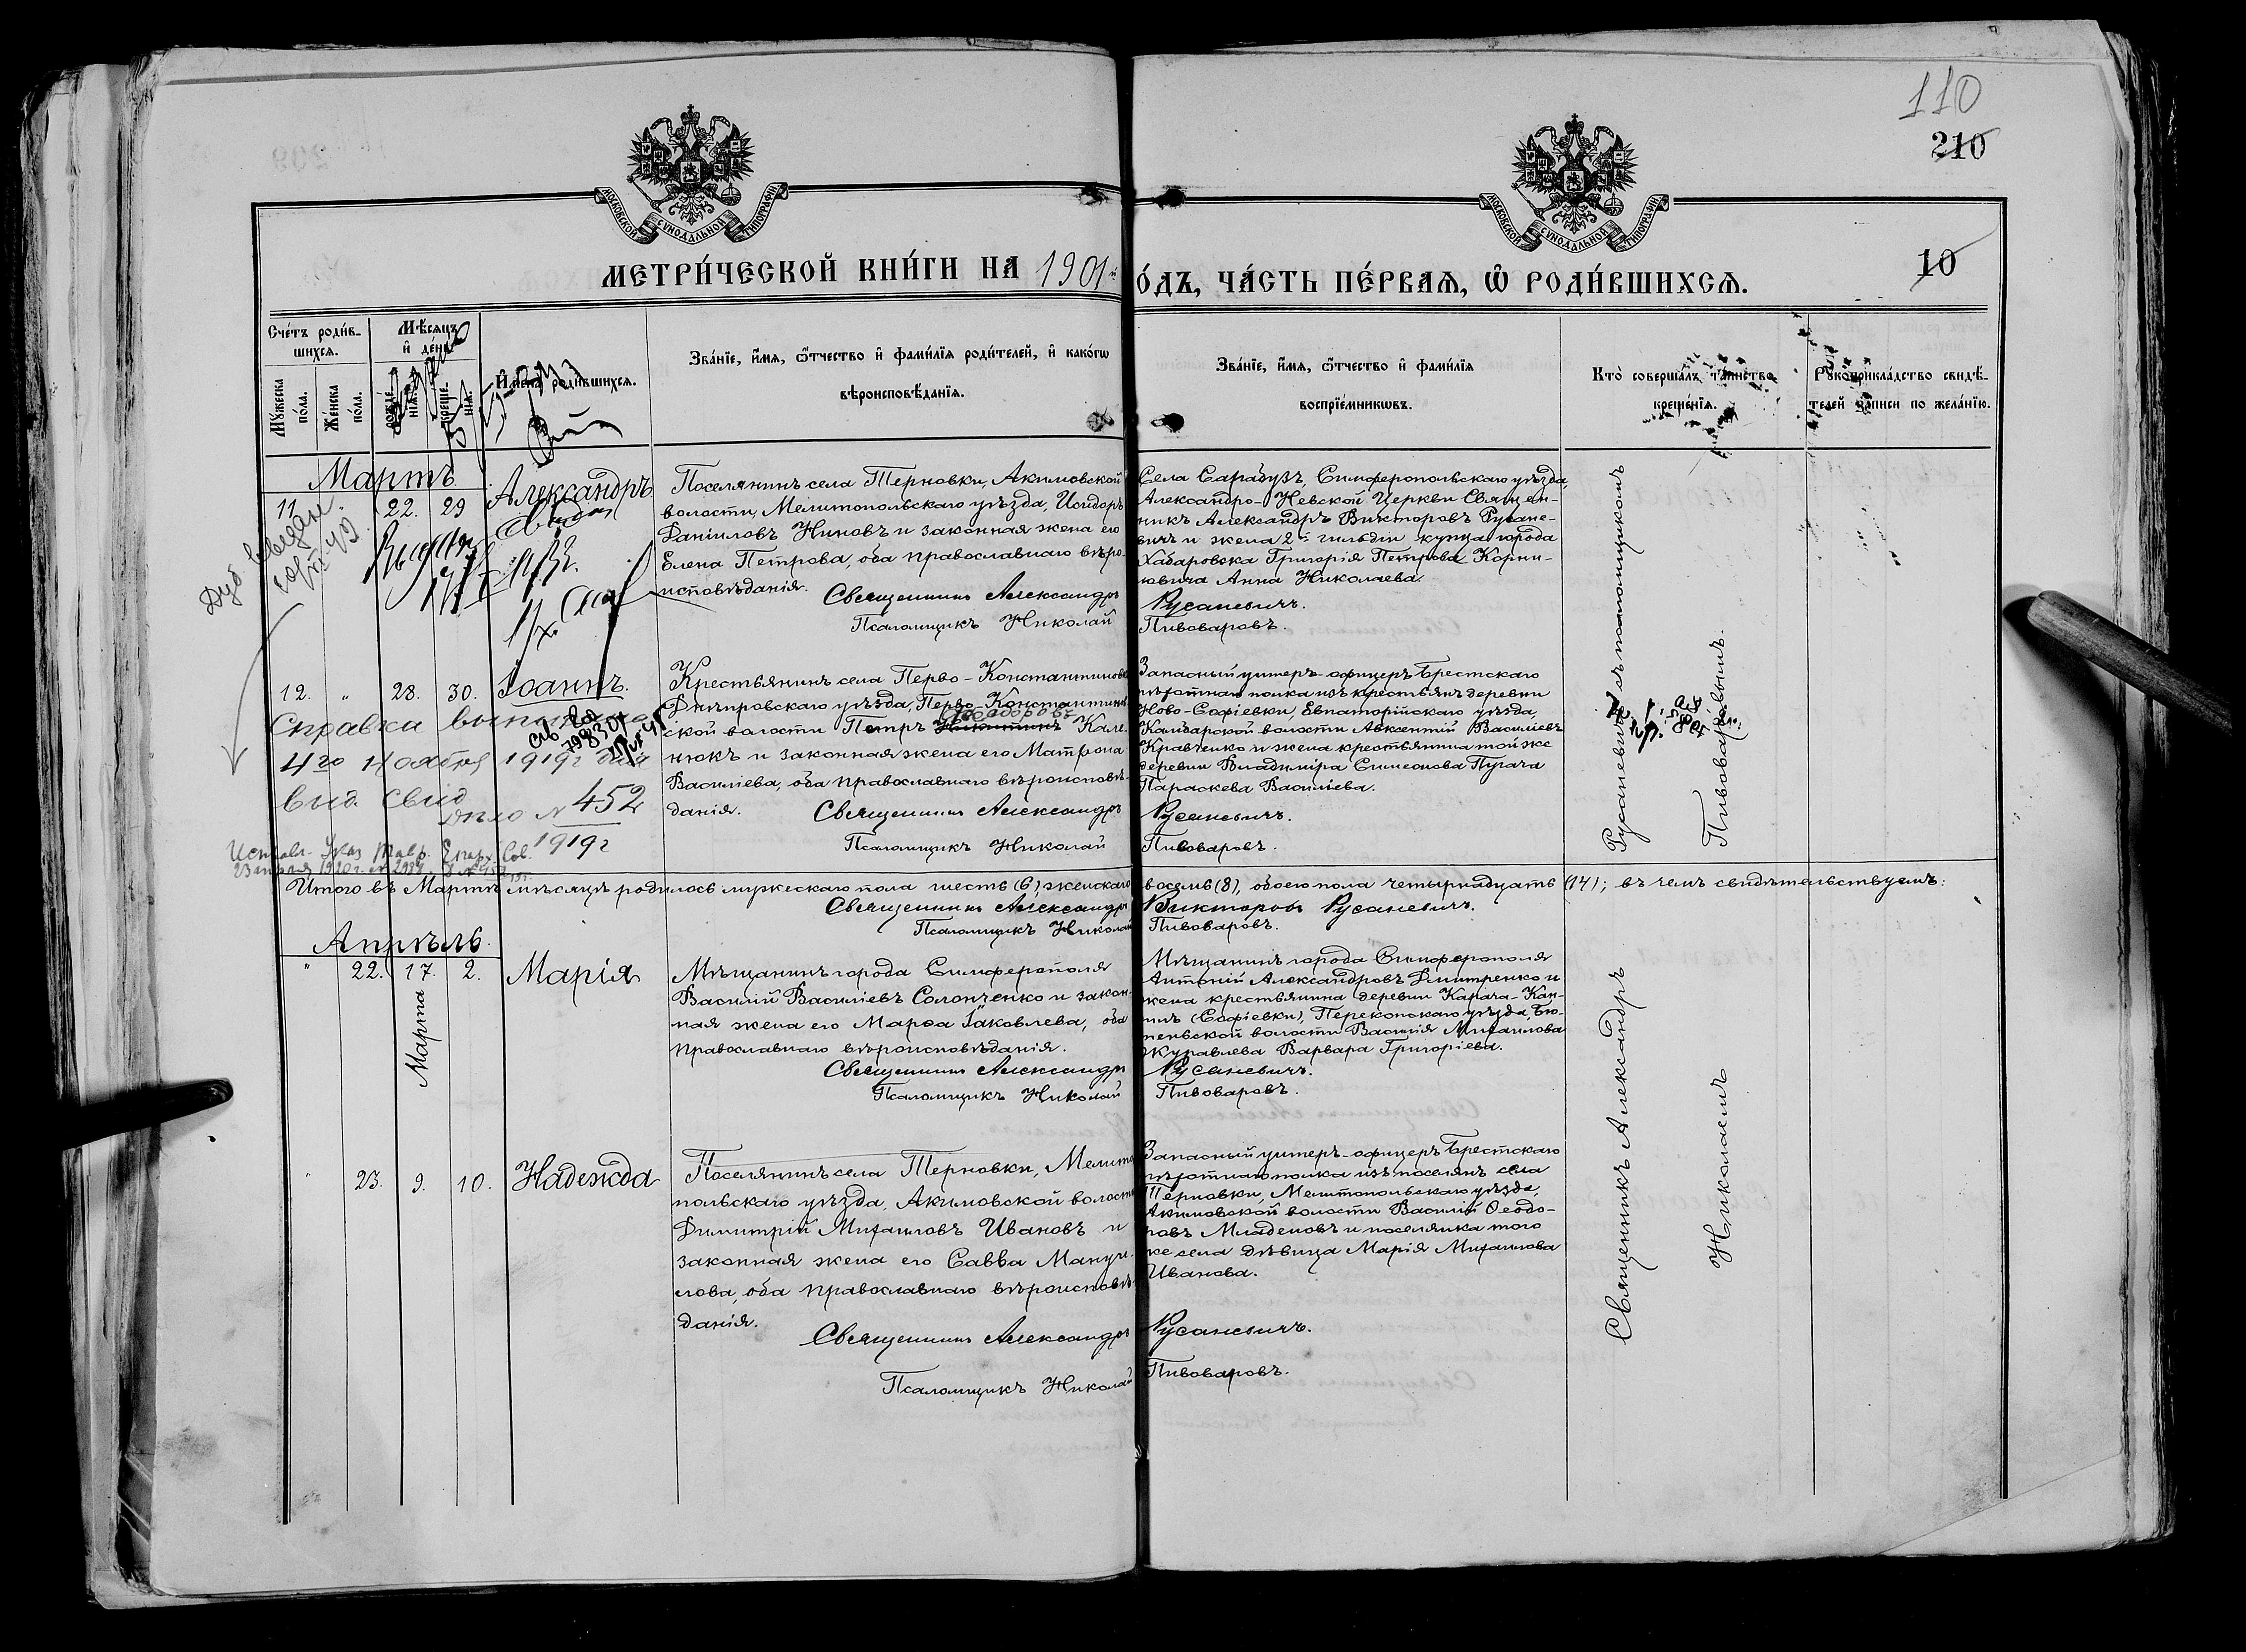 110
210
10
МОСКОВСКОЙ СѴНОДАЛЬНОЙ ТИПОГРАФІИ
МОСКОВСКОЙ СѴНОДАЛЬНОЙ ТИПОГРАФІИ
МЕТРИ́ЧЕСКОЙ КНИ́ГИ НА 1901й
О́ДЪ, ЧА́СТЬ ПЕ́РВАѦ, Ѡ҆ РОДИ́ВШИХСѦ.
Сче́тъ роди́в-
шихсѧ.
Мѣ́сѧцъ
и҆ де́нь
Мꙋ́жеска
по́ла.
Же́нска
по́ла.
рожде́-
нїѧ.
креще́-
нїѧ.
И҆мена̀ роди́вшихсѧ.
Зва́нїе, и҆́мѧ, ѻ҆́тчество и҆ фами́лїѧ роди́телей, и҆ како́гѡ
вѣроисповѣ́данїѧ.
Зва́нїе, и҆́мѧ, ѻ҆́тчество и҆ фами́лїѧ
воспрїе́мникѡвъ.
Кто̀ соверша́лъ та́инство
креще́нїѧ.
Рꙋкоприкла́дство свидѣ́-
телей за́писи по жела́нїю.
Мартъ
11 " 22. 29 Александръ
Поселянинъ села Терновки, Акимовской
волости, Мелитопольскаго уѣзда, Исидоръ
Даніиловъ Ниновъ и законная жена его
Елена Петрова, оба православнаго вѣро-
исповѣданія.
Священникъ Александръ
Псаломщикъ Николай
Села Сарабузъ, Симферопольскаго уѣзда,
Александро-Невской Церкви Священ-
никъ Александръ Викторовъ Русане-
вичъ и жена 2й гильдіи купца города
Хабаровска Григорія Петрова Корни-
ловича Анна Николаева
Русаневичъ.
Пивоваровъ.
12. " 28. 30. Іоаннъ.
Крестьянинъ села Перво-Константиновки
Днѣпровскаго уѣзда, Перво-Константинов
Ѳеодоровъ
ской волости Петръ Никитинъ Кале-
нюкъ и законная жена его Матрона
Василіева, оба православнаго вѣроисповѣ-
данія.
Священникъ Александръ
Псаломщикъ Николай
Запасный унтеръ-офицеръ Брестскаго
пѣхотнаго полка изъ крестьянъ деревни
Ново-Софіевки, Евпаторійскаго уѣзда,
Камбарской волости Авксентій Василіевъ
Кравченко и жена крестьянина той же
деревни Владиміра Симеонова Пугача
Параскева Василіева.
Русаневичъ.
Пивоваровъ.
Справка
4го Ноября 1919г
вид. свид
дѣло № 452
1919г
Итого въ Мартѣ мѣсяцѣ родилось мужескаго пола шесть (6) женскаго восемь (8), обоего пола четырнадцать (14); въ чемъ свидѣтельствуемъ:
Священникъ Александръ Викторовъ Русаневичъ.
Псаломщикъ Николай Пивоваровъ.
Апрѣль.
" 22. 17. 2. Марія
Марта
Мѣщанинъ города Симферополя
Василій Василіевъ Солонченко и закон-
ная жена его Марѳа Іаковлева, оба
православнаго вѣроисповѣданія.
Священникъ Александръ
Псаломщикъ Николай
Мѣщанинъ города Симферополя
Антоній Александровъ Дмитренко и
жена крестьянина деревни Карача-Кан-
гилъ (Софіевки), Перекопскаго уѣзда, Бю-
теньской волости Василія Михаилова
Журавлева Варвара Григоріева.
Русаневичъ.
Пивоваровъ.
" 23. 9. 10. Надежда
Поселянинъ села Терновки, Мелито
польскаго уѣзда, Акимовской волости
Димитрій Михаиловъ Ивановъ и
законная жена его Савва Мануи-
лова, оба православнаго вѣроисповѣ
данія.
Священникъ Александръ
Псаломщикъ Николай
Запасный унтеръ-офицеръ Брестскаго
пѣхотнаго полка изъ поселянъ села
Терновки, Мелитопольскаго уѣзда,
Акимовской волости Василій Ѳеодо-
ровъ Младеновъ и поселянка того
же села дѣвица Марія Михаилова
Иванова.
Русаневичъ.
Пивоваровъ.
Священникъ Александръ Русаневичъ съ псаломщикомъ
Николаемъ Пивоваровымъ.